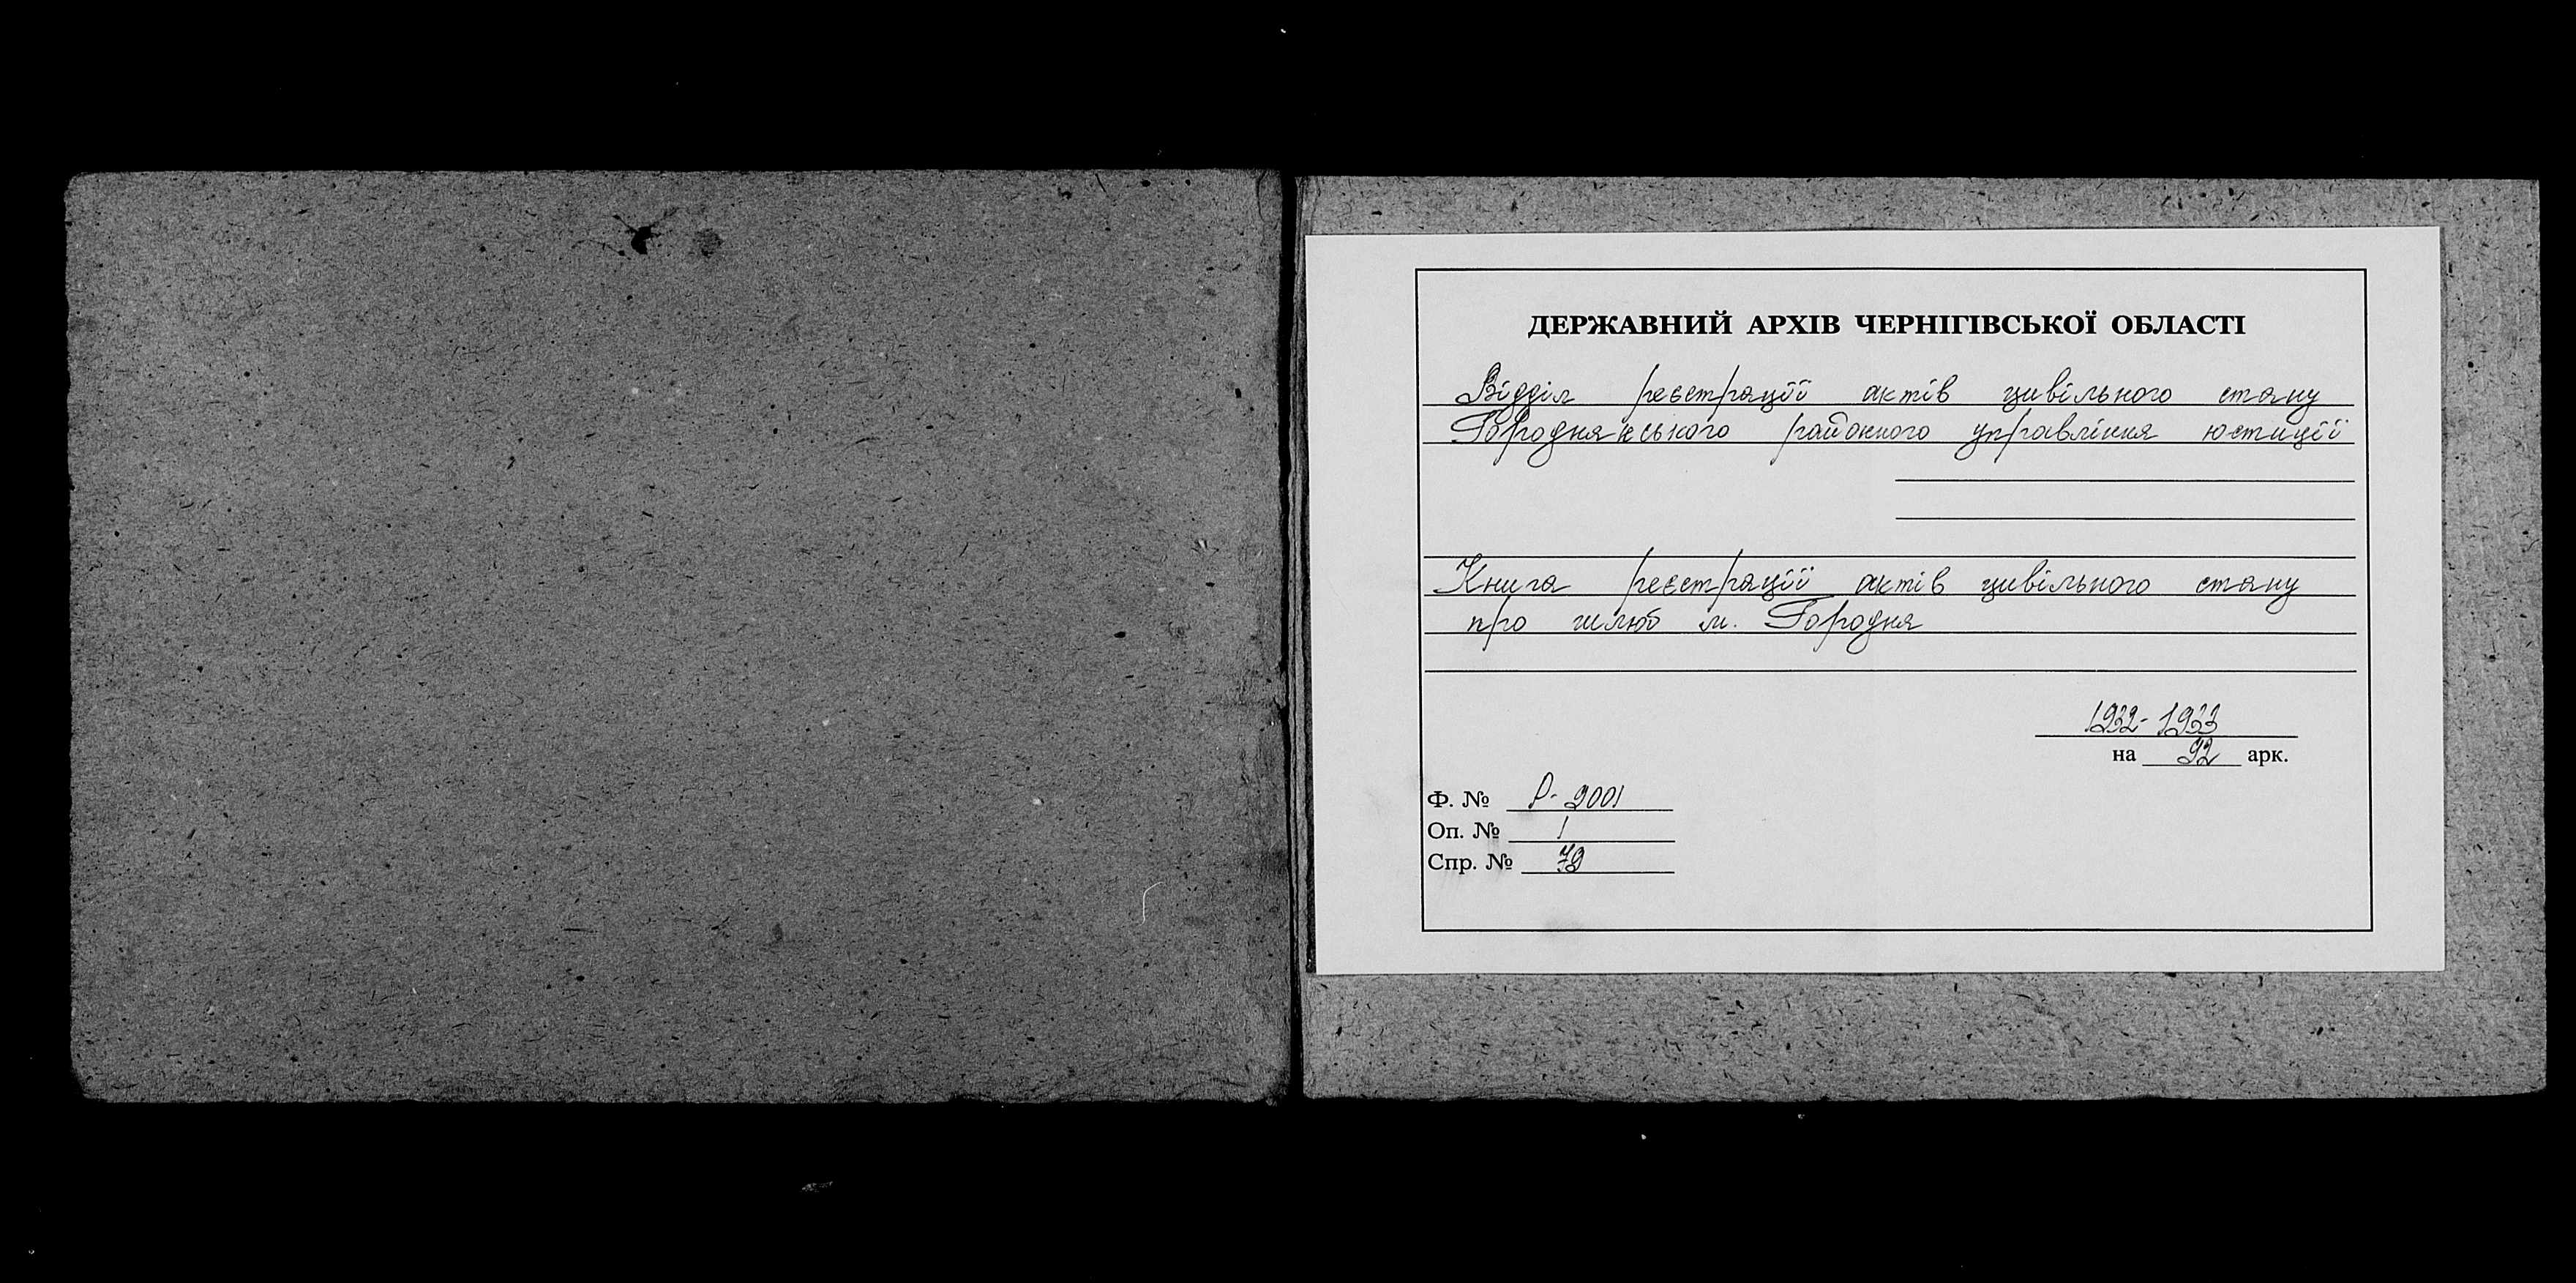 ДЕРЖАВНИЙ АРХІВ ЧЕРНІГІВСЬКОЇ ОБЛАСТІ
Відділ реєстрації актів цивільного стану
Городнянського районного управління юстиції
Книга реєстрації актів цивільного стану
про шлюб м. Городня
1932-1933
на 92 арк.
Ф. № Р-9001
Оп. № 1
Спр. № 79